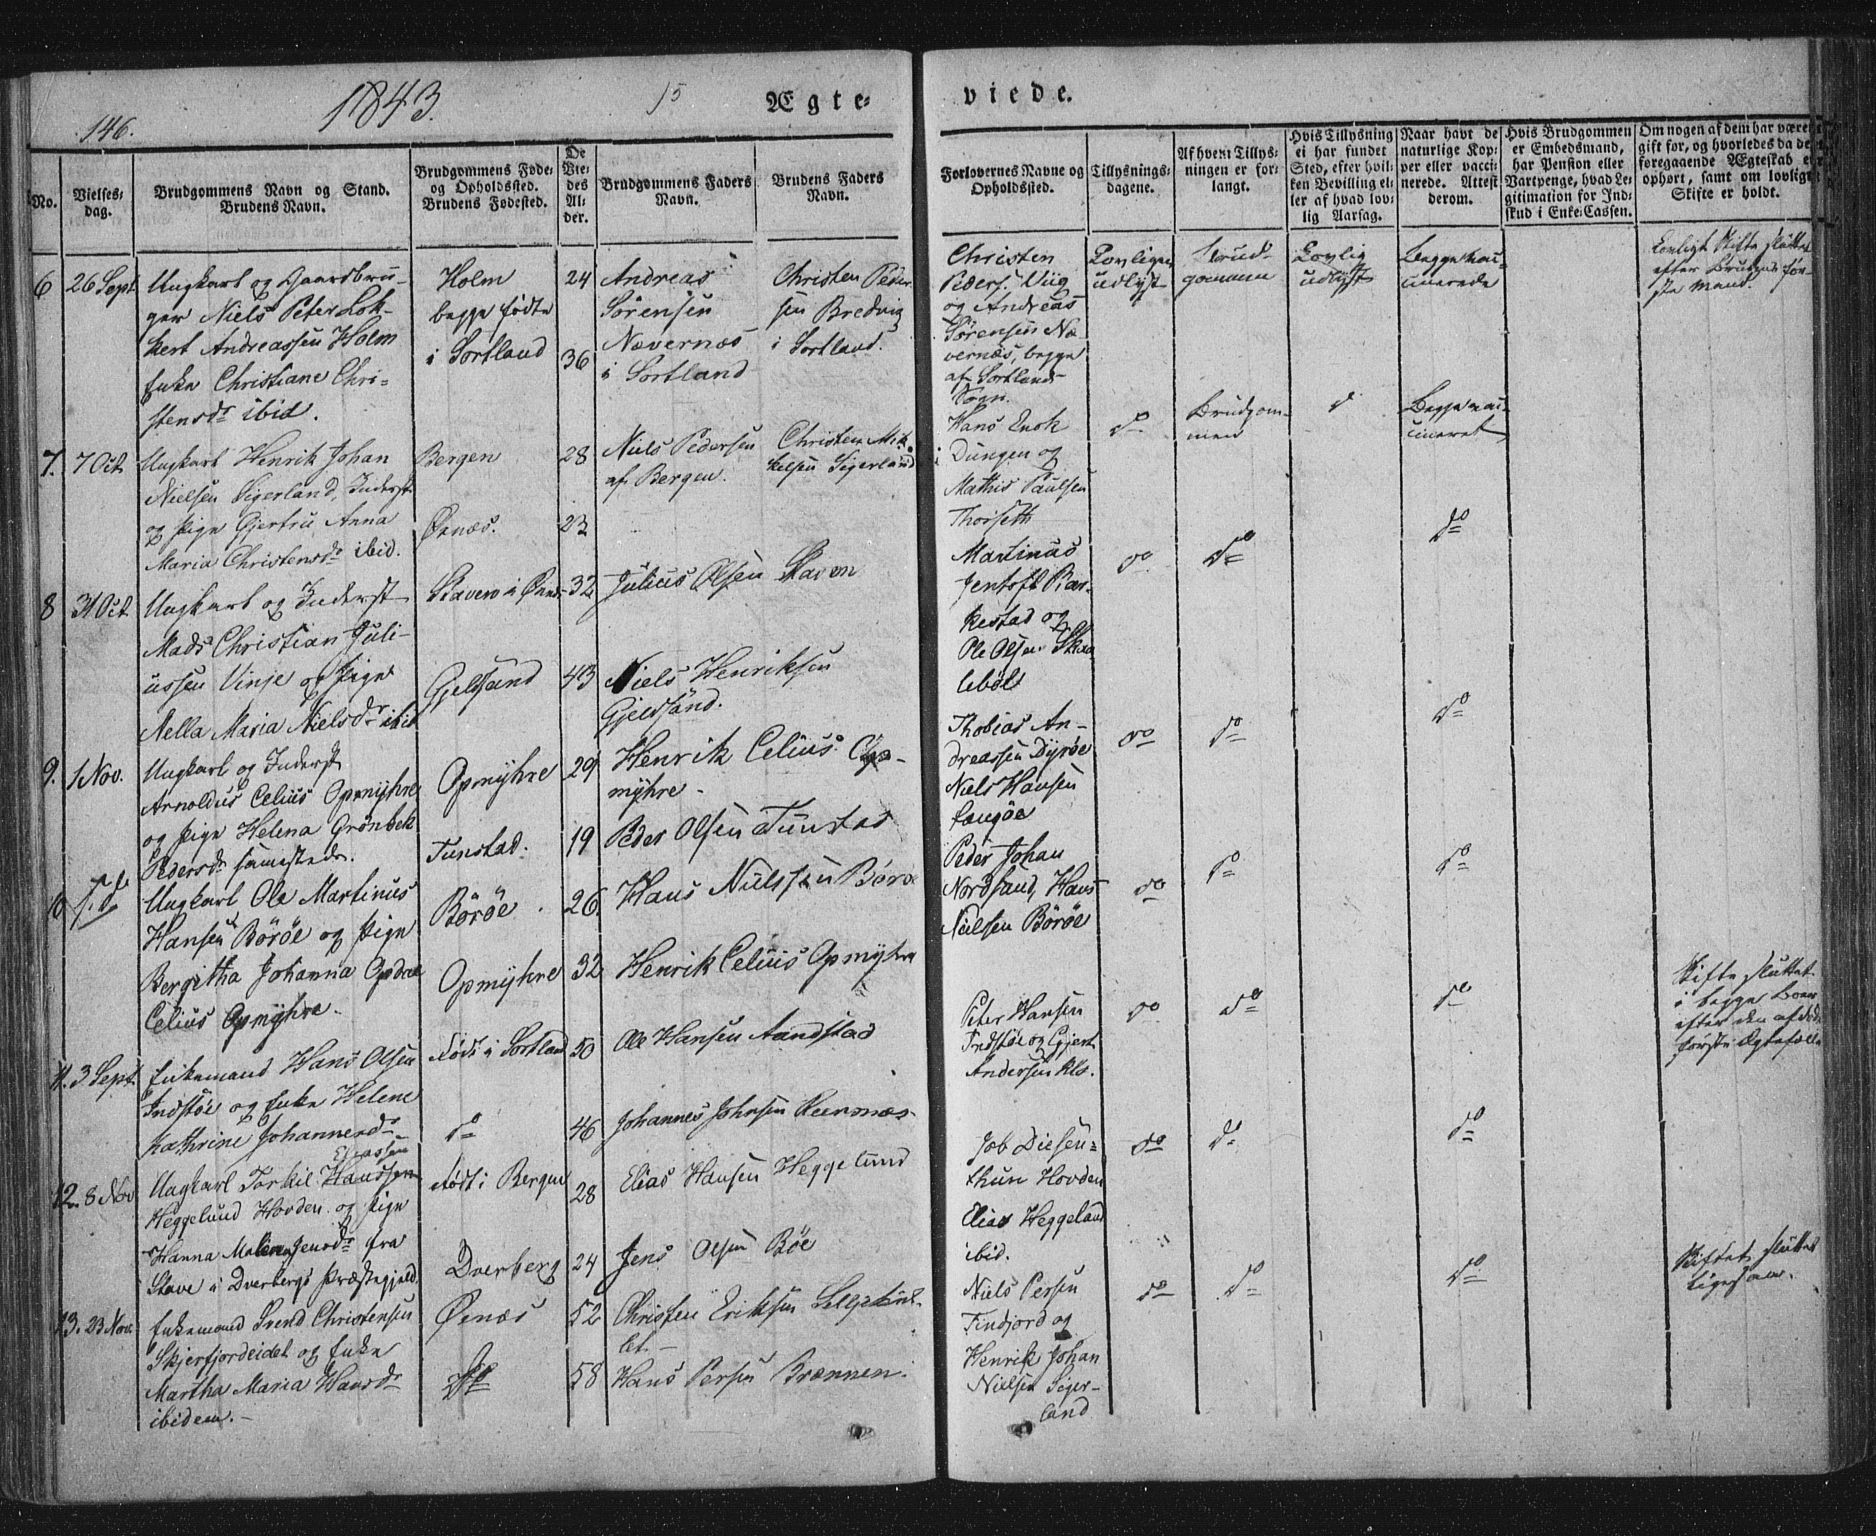 146.
1843.
15
Ægte-
viede.
No.
Vielses-
dag.
Brudgommens Navn og Stand.
Brudens Navn.
Brudgommens Føde-
og Opholdssted.
Brudens Fødested.
De
Vie-
des
Al-
der.
Brudgommens Faders
Navn.
Brudens Faders
Navn.
Forlovernes Navne og
Opholdssted.
Tillysnings-
dagene.
Af hvem Tillys-
ningen er for-
langt.
Hvis Tillysning
ei har fundet
Sted, efter hvil-
ken Bevilling el-
ler af hvad lov-
lig Aarsag.
Naar havt de
naturlige Kop-
per eller vacci-
nerede. Attest
derom.
Hvis Brudgommen
er Embedsmand,
har Pension eller
Vartpenge, hvad Le-
gitimation for Ind-
skud i Enke-Cassen.
Om nogen af dem har været
gift for, og hvorledes da de
foregaaende Ægteskab er
ophørt, samt om lovligt
Skifte er holdt.
6
26 Sept.
Ungkarl og Gaardbru-
ger Niels Peter Lok-
kert Andreassen Holm
Enke Christiane Chri-
stensdr ibid.
Holm
begge fødte
i Sortland
24
36
Andreas
Sørensen
Nævernæs
i Sortland
Christen Peder-
sen Bredvig
i Sortland.
Christen
Peders. Viig
og Andreas
Sørensen Næ-
vernæs, begge
af Sortlands
Sogn.
Lovligen
udlyst
Brud-
gommen
Lovlig
udlyst
Begge vac-
cinerede
Lovligt Skifte sluttet
efter Brudens før-
ste Mand.
7.
7 Oct
Ungkarl Henrik Johan
Nielsen Sigerland, Inderst
og Pige Gjertru Anna
Maria Christensdr ibid.
Bergen
Øsnæs.
28
23
Niels Pedersen
af Bergen.
Christen Mik-
kelsen Sigerland
Hans Enok
i Dungen og
Mathis Paulsen
Thorseth
do
Brudgom-
men
d
Begge vac-
cineret
8
31 Oct
Ungkarl og Inderst
Mads Christian Juli-
ussen Vinje og Pige
Nella Maria Nielsdr ibid
Skaven i Øsnæs
Gjeldsund
32
43
Julius Olsen Skaven
Niels Henriksen
Gjeldsund.
Martinus
Jentoft Bar-
kestad og
Ole Olsen Skaa-
lebøl
do
do
do
9.
1 Nov.
Ungkarl og Inderst
Arnoldus Celius Opmyhre
og Pige Helena Grønbek
Pedersdr sammestedr.
Opmyhre
Tunstad.
29
19
Henrik Celius Op-
myhre -
Peder Olsen Tunstad
Thobias An-
dreassen Dyrøe
Niels Hansen
Langøe
do
do
do
10
Ungkarl Ole Martinus
Hansen Børøe og Pige
Bergitha Johanna Opdal
Celius Opmyhre.
Børøe
Opmyhre
26
32
Hans Nielssen Børøe
Henrik Celius Opmyhre
Peder Johan
Nordsand, Hans
Nielsen Børøe
do
do
do
11.
3 Sept.
Enkemand Hans Olsen
Indstøe og Enke Helene
Kathrine Johannesdr
Født i Sortland
do
50
46
Ole Hansen Aandstad
Johannes Johnsen Reersnæs
Peter Hansen
Indstøe og Gjert
Andersen
do
do
do
Skifte sluttet
i begge Boer
efter den afdøde
første Ægtefælle
12.
8 Nov
Eliassen
Ungkarl Torkil Hanssen
Heggelund Hovden og Pige
Hanna Malena Jensdr fra
Stave i Dverbergs Præstegjeld
Født i Bergen
Dverberg
28
24
Elias Hansen Heggelund
Jens Olsen Bøe
Job Diesen-
thun Hovden
Elias Heggeland
ibid.
do
do
do
13.
23 Nov.
Enkemand Svend Christensen
Skjerfjordeidet og Enke
Martha Maria Hansdr
ibidem. -
Øsnæs
do
52
58
Christen Eriksen
Hans Persen Brennen.
Niels Persen
Finfjord og
Henrik Johan
Nielsen Siger-
land
do
do
do
Skiftet sluttet
ligesaa.